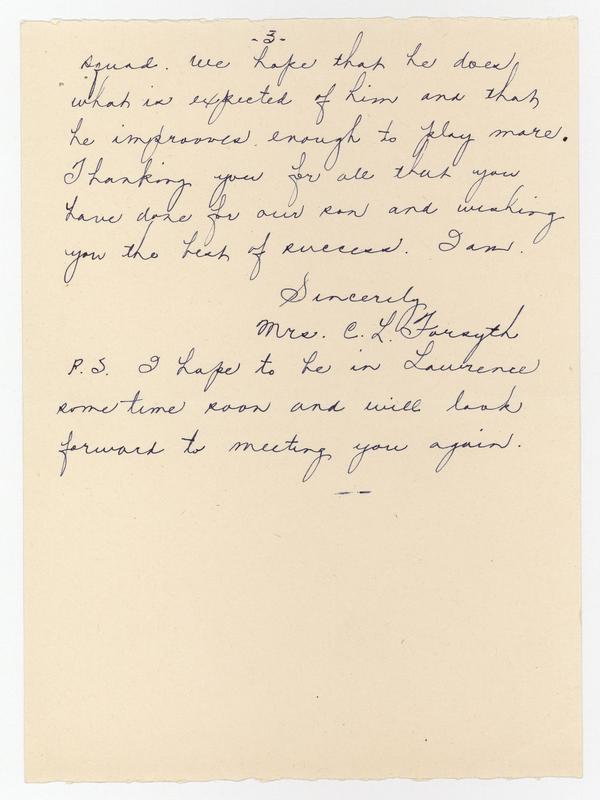 -3-
squad. We hope that he does
what is expected of him and that
he improoves enough to play more.
Thanking you for all that you
have done for our son and wishing
you the best of success. I am.
Sincerily
Mrs. C. L. Forsyth
P.S. I hope to be in Lawrence
some time soon and will look
forward to meeting you again.